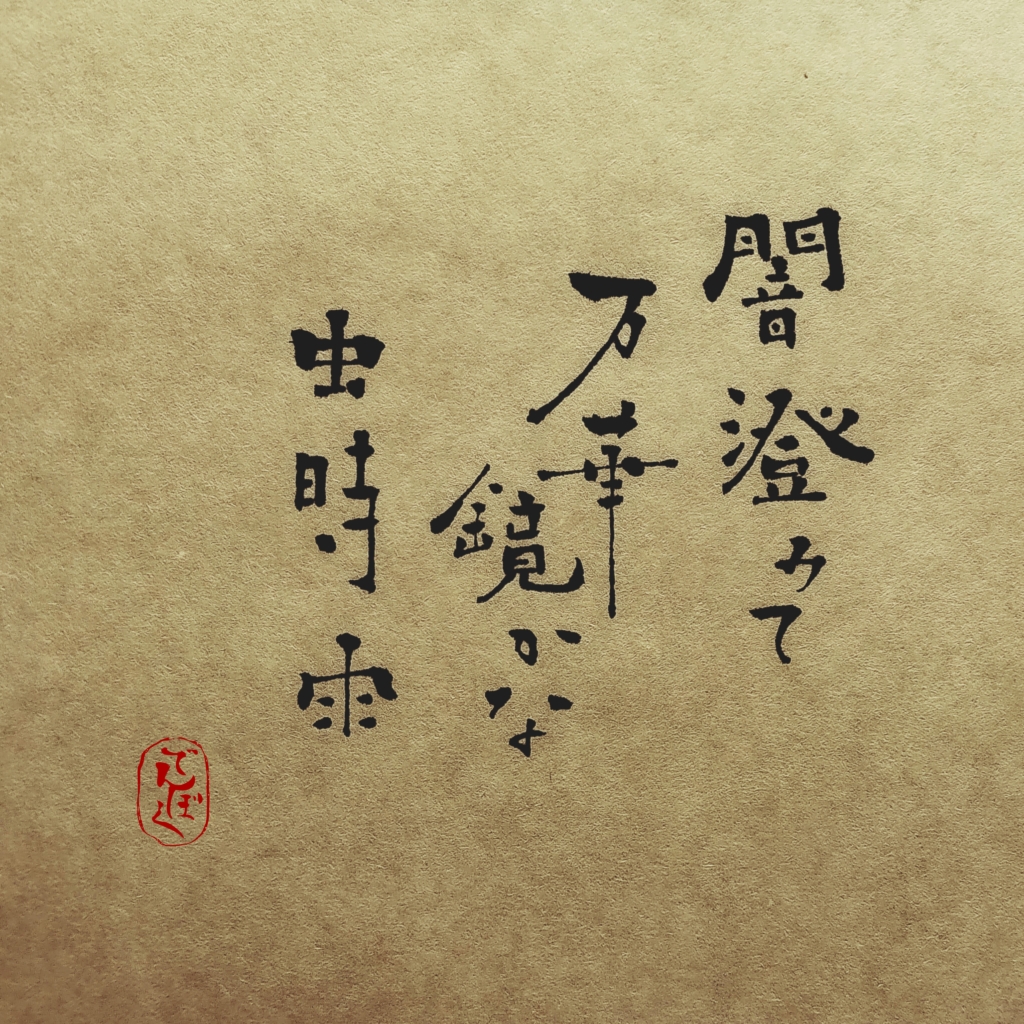 闇澄みて
万華鏡かな
虫時雨
でんぼく